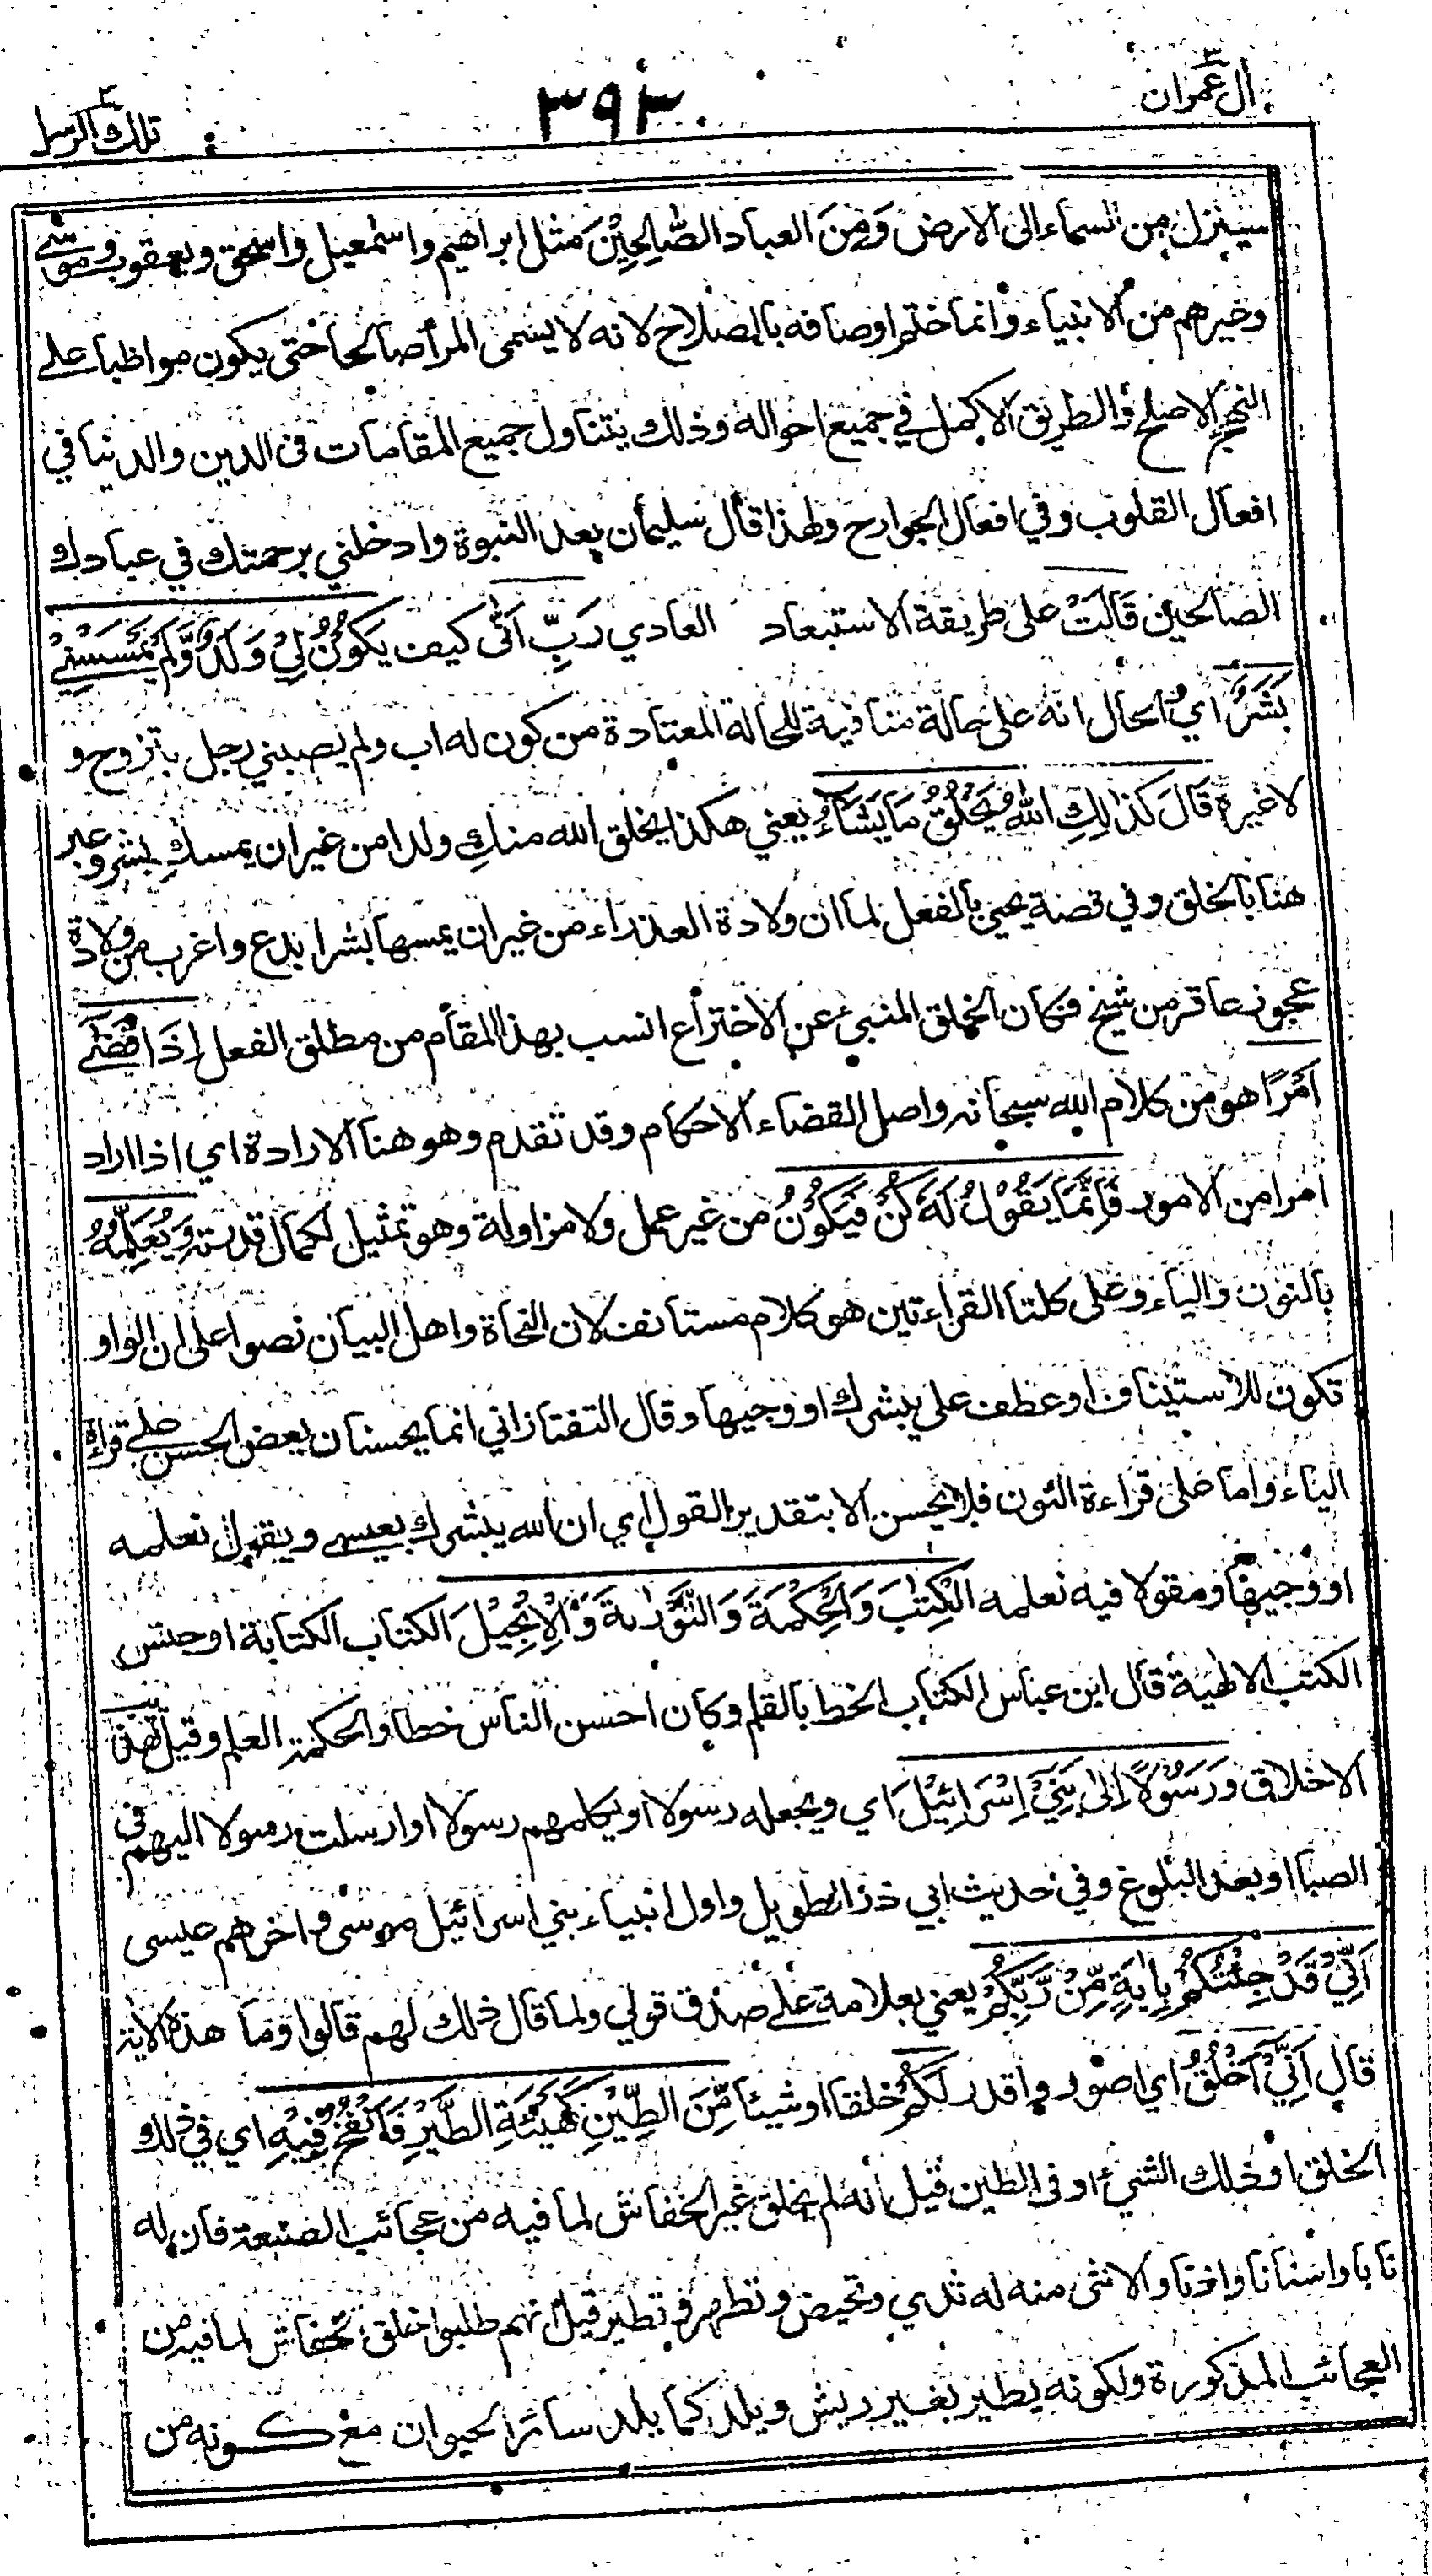 اٰل عمران ٣
٣٩٣
تلك الرسل ٣
سينزل من السماء الى الارض وَمِنَ العباد الصّٰلِحِيْنَ مثل ابراهيم واسمعيل واسحق ويعقوب وموسى
وغيرهم من الانبياء وانما ختم اوصافه بالصلاح لانه لا يسمى المرأ صالحا حتى يكون مواظبا على
النهج الاصلح والطريق الاكمل في جميع احواله وذلك يتناول جميع المقامات فى الدين والدنيا في
افعال القلوب وفي افعال الجوارح ولهذا قال سليمان بعد النبوة وادخلني برحمتك في عبادك
الصالحين قَالَتْ على طريقة الاستبعاد العادي رَبِّ اَنّٰى كيف يَكُوْنُ لِيْ وَلَدٌ وَّلَمْ يَمْسَسْنِيْ
بَشَرٌ اي الحال انه على حالة منافية للحالة المعتادة من كون له اب ولم يصبني رجل بتزوج و
لا غيره قَالَ كَذٰلِكِ اللّٰهُ يَخْلُقُ مَا يَشَآءُ يعني هكذا يخلق الله منكِ ولدا من غير ان يمسكِ بشر وعبر
هنا بالخلق وفي قصة يحيى بالفعل لما ان ولادة العذراء من غير ان يمسها بشر ابدع واغرب من ولادة
عجوز عاقر من شيخ فكان الخلق المنبىء عن الاختراع انسب بهذا المقام من مطلق الفعل اِذَا قَضٰٓى
اَمْرًا هو من كلام الله سبحانه واصل القضاء الاحكام وقد تقدم وهو هنا الارادة اي اذا اراد
امرا من الامور فَاِنَّمَا يَقُوْلُ لَهٗ كُنْ فَيَكُوْنُ من غير عمل ولا مزاولة وهو تمثيل لكمال قدرته وَيُعَلِّمُهُ
بالنون والياء وعلى كلتا القراءتين هو كلام مستانف لان النحاة واهل البيان نصوا على ان الواو
تكون للاستيناف او عطف على يبشرك او وجيها وقال التفتازاني انما يحسنان بعض الحسن على قراءة
الياء واما على قراءة النون فلا يحسن الا بتقدير القول اي ان الله يبشرك بعيسى ويقول نعلمه
او وجيها ومقولا فيه نعلمه الْكِتٰبَ وَالْحِكْمَةَ وَالتَّوْرٰىةَ وَالْاِنْجِيْلَ الكتاب الكتابة او جنس
الكتب الالهية قال ابن عباس الكتاب الخط بالقلم وكان احسن الناس خطا والحكمة العلم وقيل تهذيب
الاخلاق وَرَسُوْلًا اِلٰى بَنِيْٓ اِسْرَآئِيْلَ اي ويجعله رسولا او يكلمهم رسولا او ارسلت رسولا اليهم فى
الصبا او بعد البلوغ وفي حديث ابي ذر الطويل واول انبياء بني اسرائيل موسى واخرهم عيسى
اَنِّيْ قَدْ جِئْتُكُمْ بِاٰيَةٍ مِّنْ رَّبِّكُمْ يعني بعلامة على صدق قولي ولما قال ذلك لهم قالوا وما هذه الاية
قال اَنِّيْٓ اَخْلُقُ اي اصور واقدر لَكُمْ خلقا او شيئا مِّنَ الطِّيْنِ كَهَيْئَةِ الطَّيْرِ فَاَنْفُخُ فِيْهِ اي في ذلك
الخلق او ذلك الشيء او فى الطين قيل انه لم يخلق غير الخفاش لما فيه من عجائب الصنعة فان له
نابا واسنانا واذنا والانثى منه له ثدي وتحيض وتطهر وتطير قيل انهم طلبوا خلق خفاش لما فيه من
العجائب المذكورة ولكونه يطير بغير ريش ويلد كما يلد سائر الحيوان مع كونه من